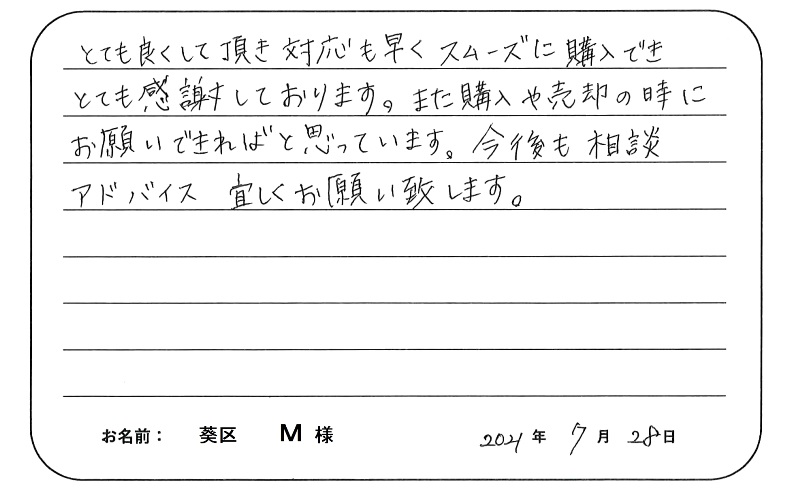 とても良くして頂き 対応も早く スムーズに 購入でき
とても感謝しております。また購入や売却の時に
お願いできればと思っています。今後も 相談
アドバイス 宜しくお願い致します。
お名前： 葵区 M 様 2021年 7月 28日